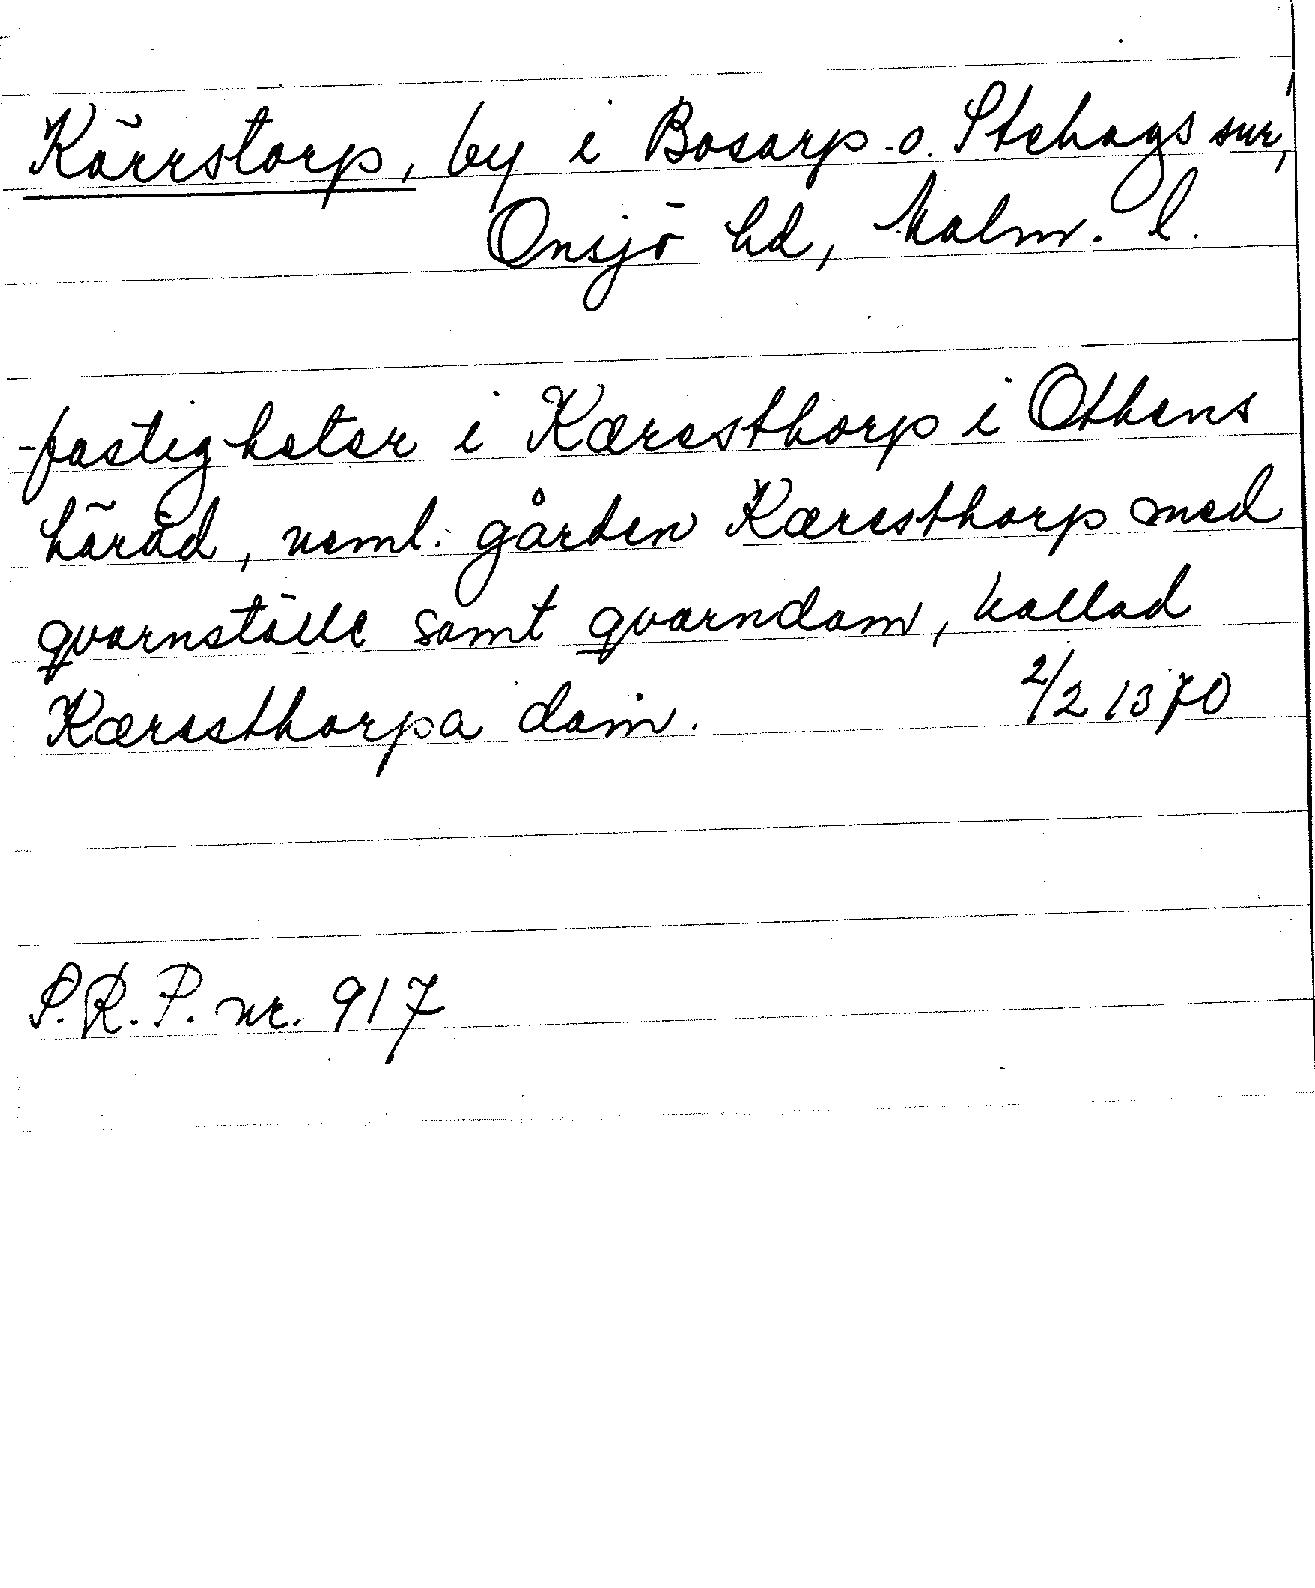 Kärrstorp, by i Bosarp o. Stehags snr,
Onsjö hd, Malm. l.
fastigheter i Kæresthorp i Othens
härad, neml. gården Kæresthorp med
qvarnställe samt qvarndam, kallad
Kæresthorpa dam. 2/2 1370
S.R.P. nr. 917